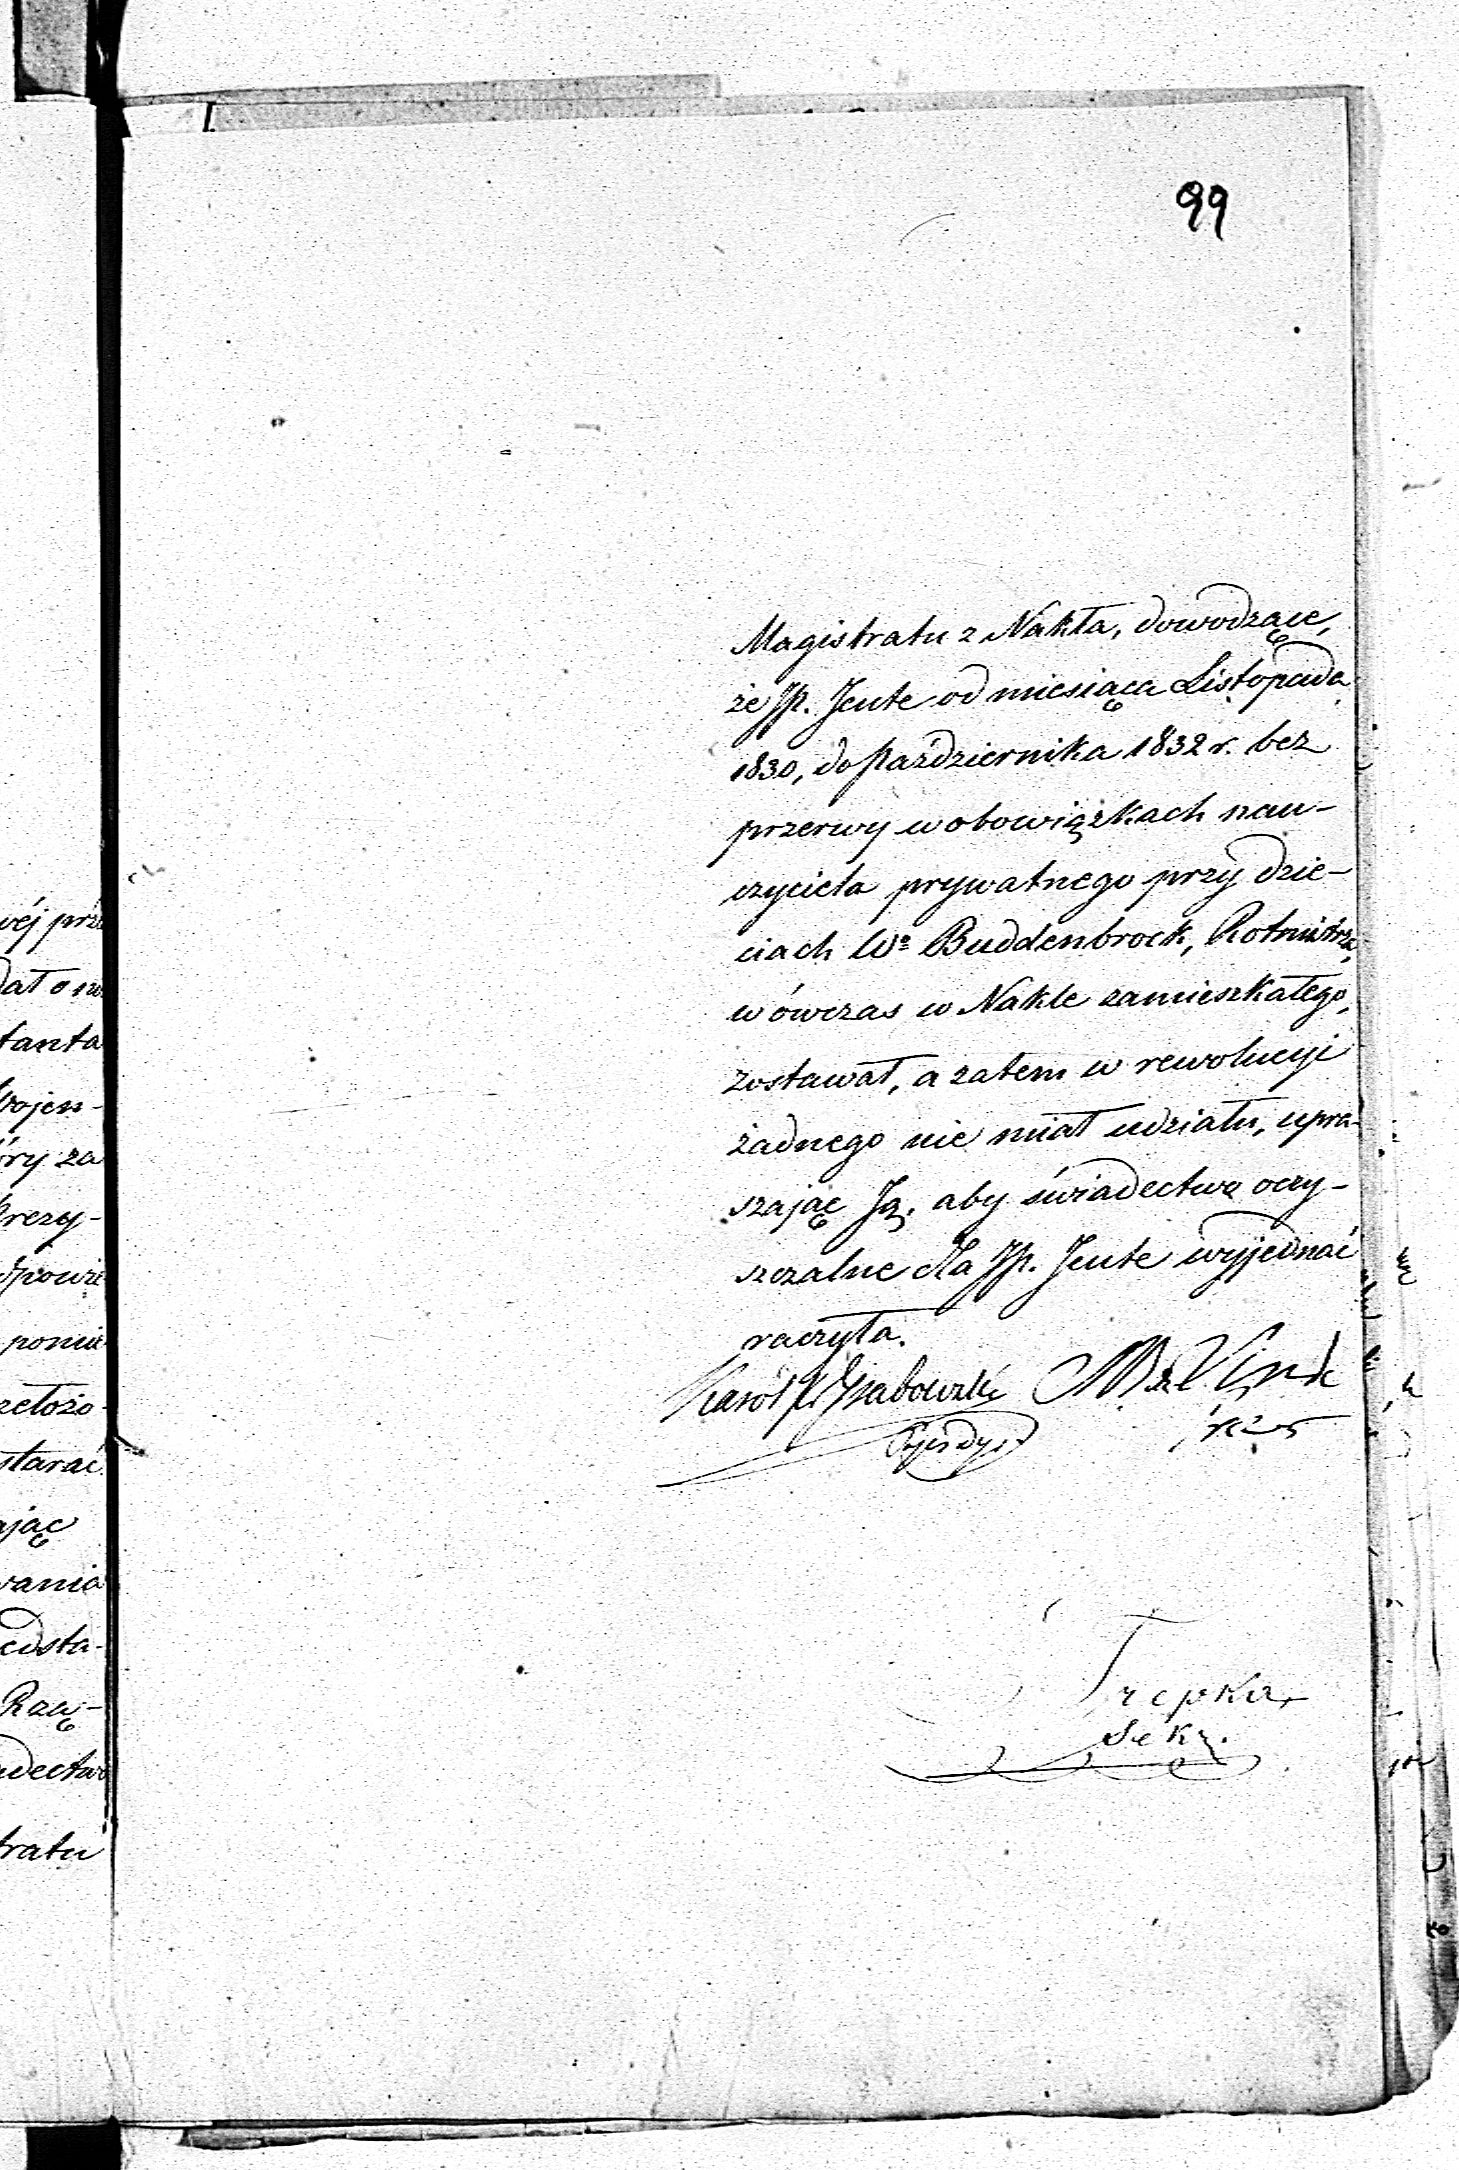 99
Magistratu z Nakła, dowodzące,
że JP. Jente od miesiąca Listopada
1830, do Października 1832 r. bez
przerwy w obowiązkach nau-
czyciela prywatnego przy dzie-
ciach Wo Buddenbrock, Rotmistrza,
wówczas w Nakle zamieszkałego,
zostawał, a zatem w rewolucyi
żadnego nie miał udziału, upra-
szając Ją, aby świadectwo oczy-
szczalne dla JP. Jente wyjednać
raczyła.
Karól
Trepka
Sekr.
wéj prze
dał o
tanta
wojen-
óry za
Prezy-
ponie
zełożo-
starać
ając
wania
edsta-
Rzą-
adectwo
tratu